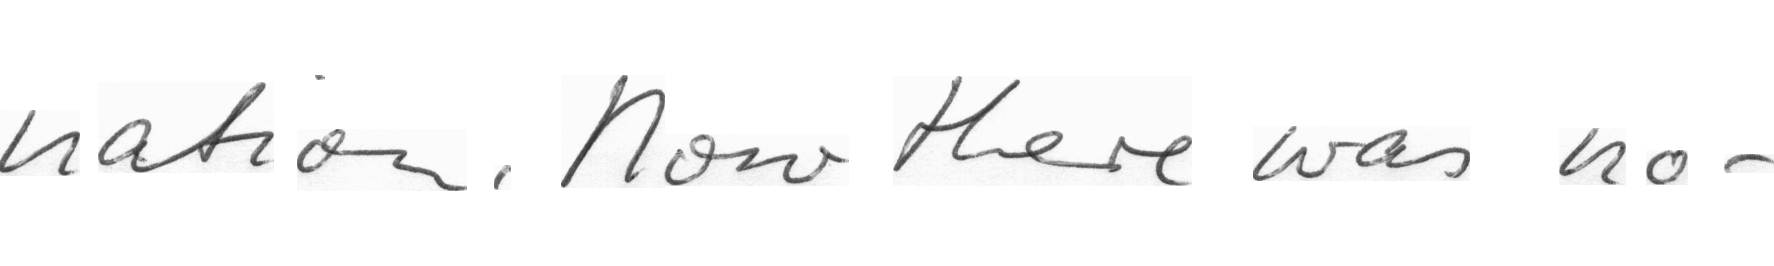 nation. Now there was no-